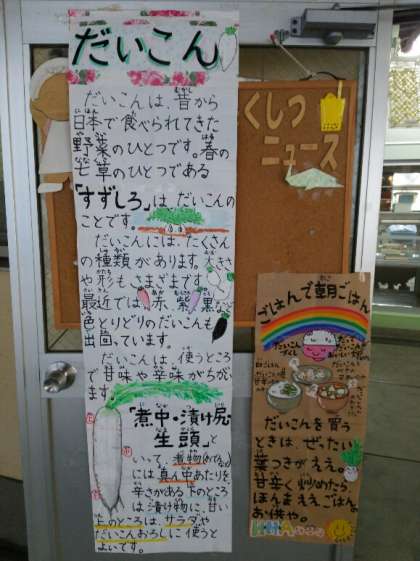 だいこん
だいこんは、昔から
日本で食べられてきた
野菜のひとつです。春の
七草のひとつである
「すずしろ」は、だいこんの
ことです。
だいこんには、たくさん
の種類があります。大きさ
や形もさまざまです。
最近では、赤、紫、黒など
色とりどりのだいこんも
出回っています。
だいこんは、使うところ
で甘味や辛味がちがい
ます。
「煮中・漬け尻
生頭」と
いって、煮物
には真ん中あたりを、
辛さがある下のところ
は漬け物に、甘い
上のところは、サラダや
だいこんおろしに使うと
よいです。
くしつ
ニュース
ごはんで朝ごはん
だいこんを買う
ときは、ぜったい
葉つきがええ。
甘辛く炒めたら
ほんまええごはん。
お供や。